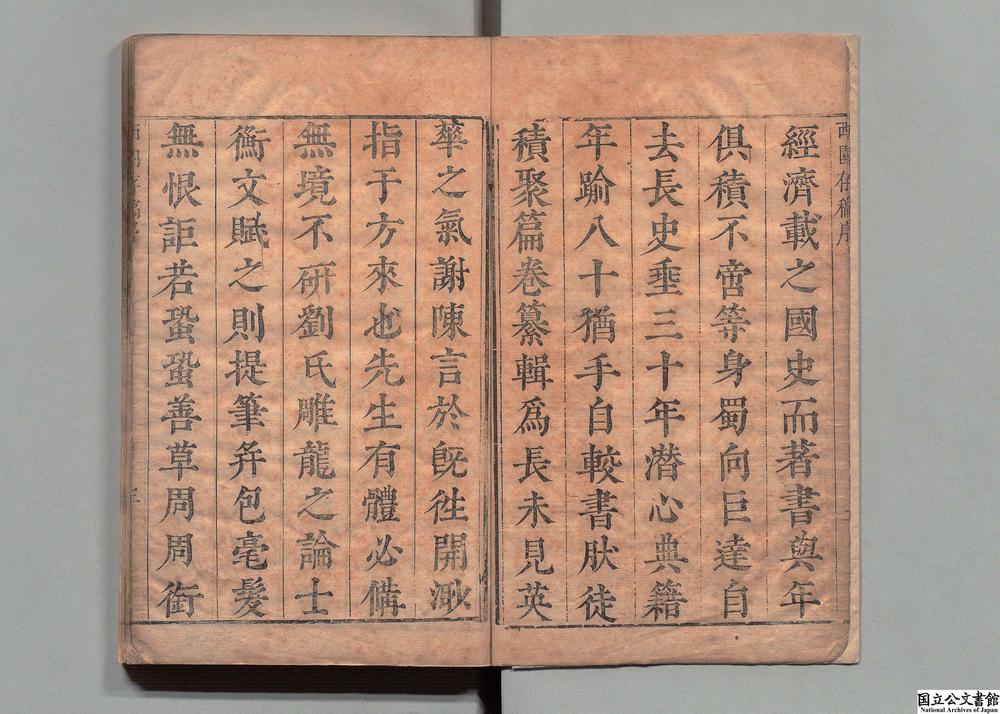 經濟載之國史而著書與年
俱積不啻等身蜀向巨達自
去長史垂三十年潜心典籍
年踰八十猶手自較書肰徒
積聚篇卷纂輯爲長未見英
華之氣謝陳言於旣徃開
指于方來也先生有體必備
無境不硏劉氏雕龍之論士
衡文賦之則提筆并包毫髮
無恨詎若蛩蛩善草周周銜
西園存稿序
三
国立公文書館
National Archives of Japan